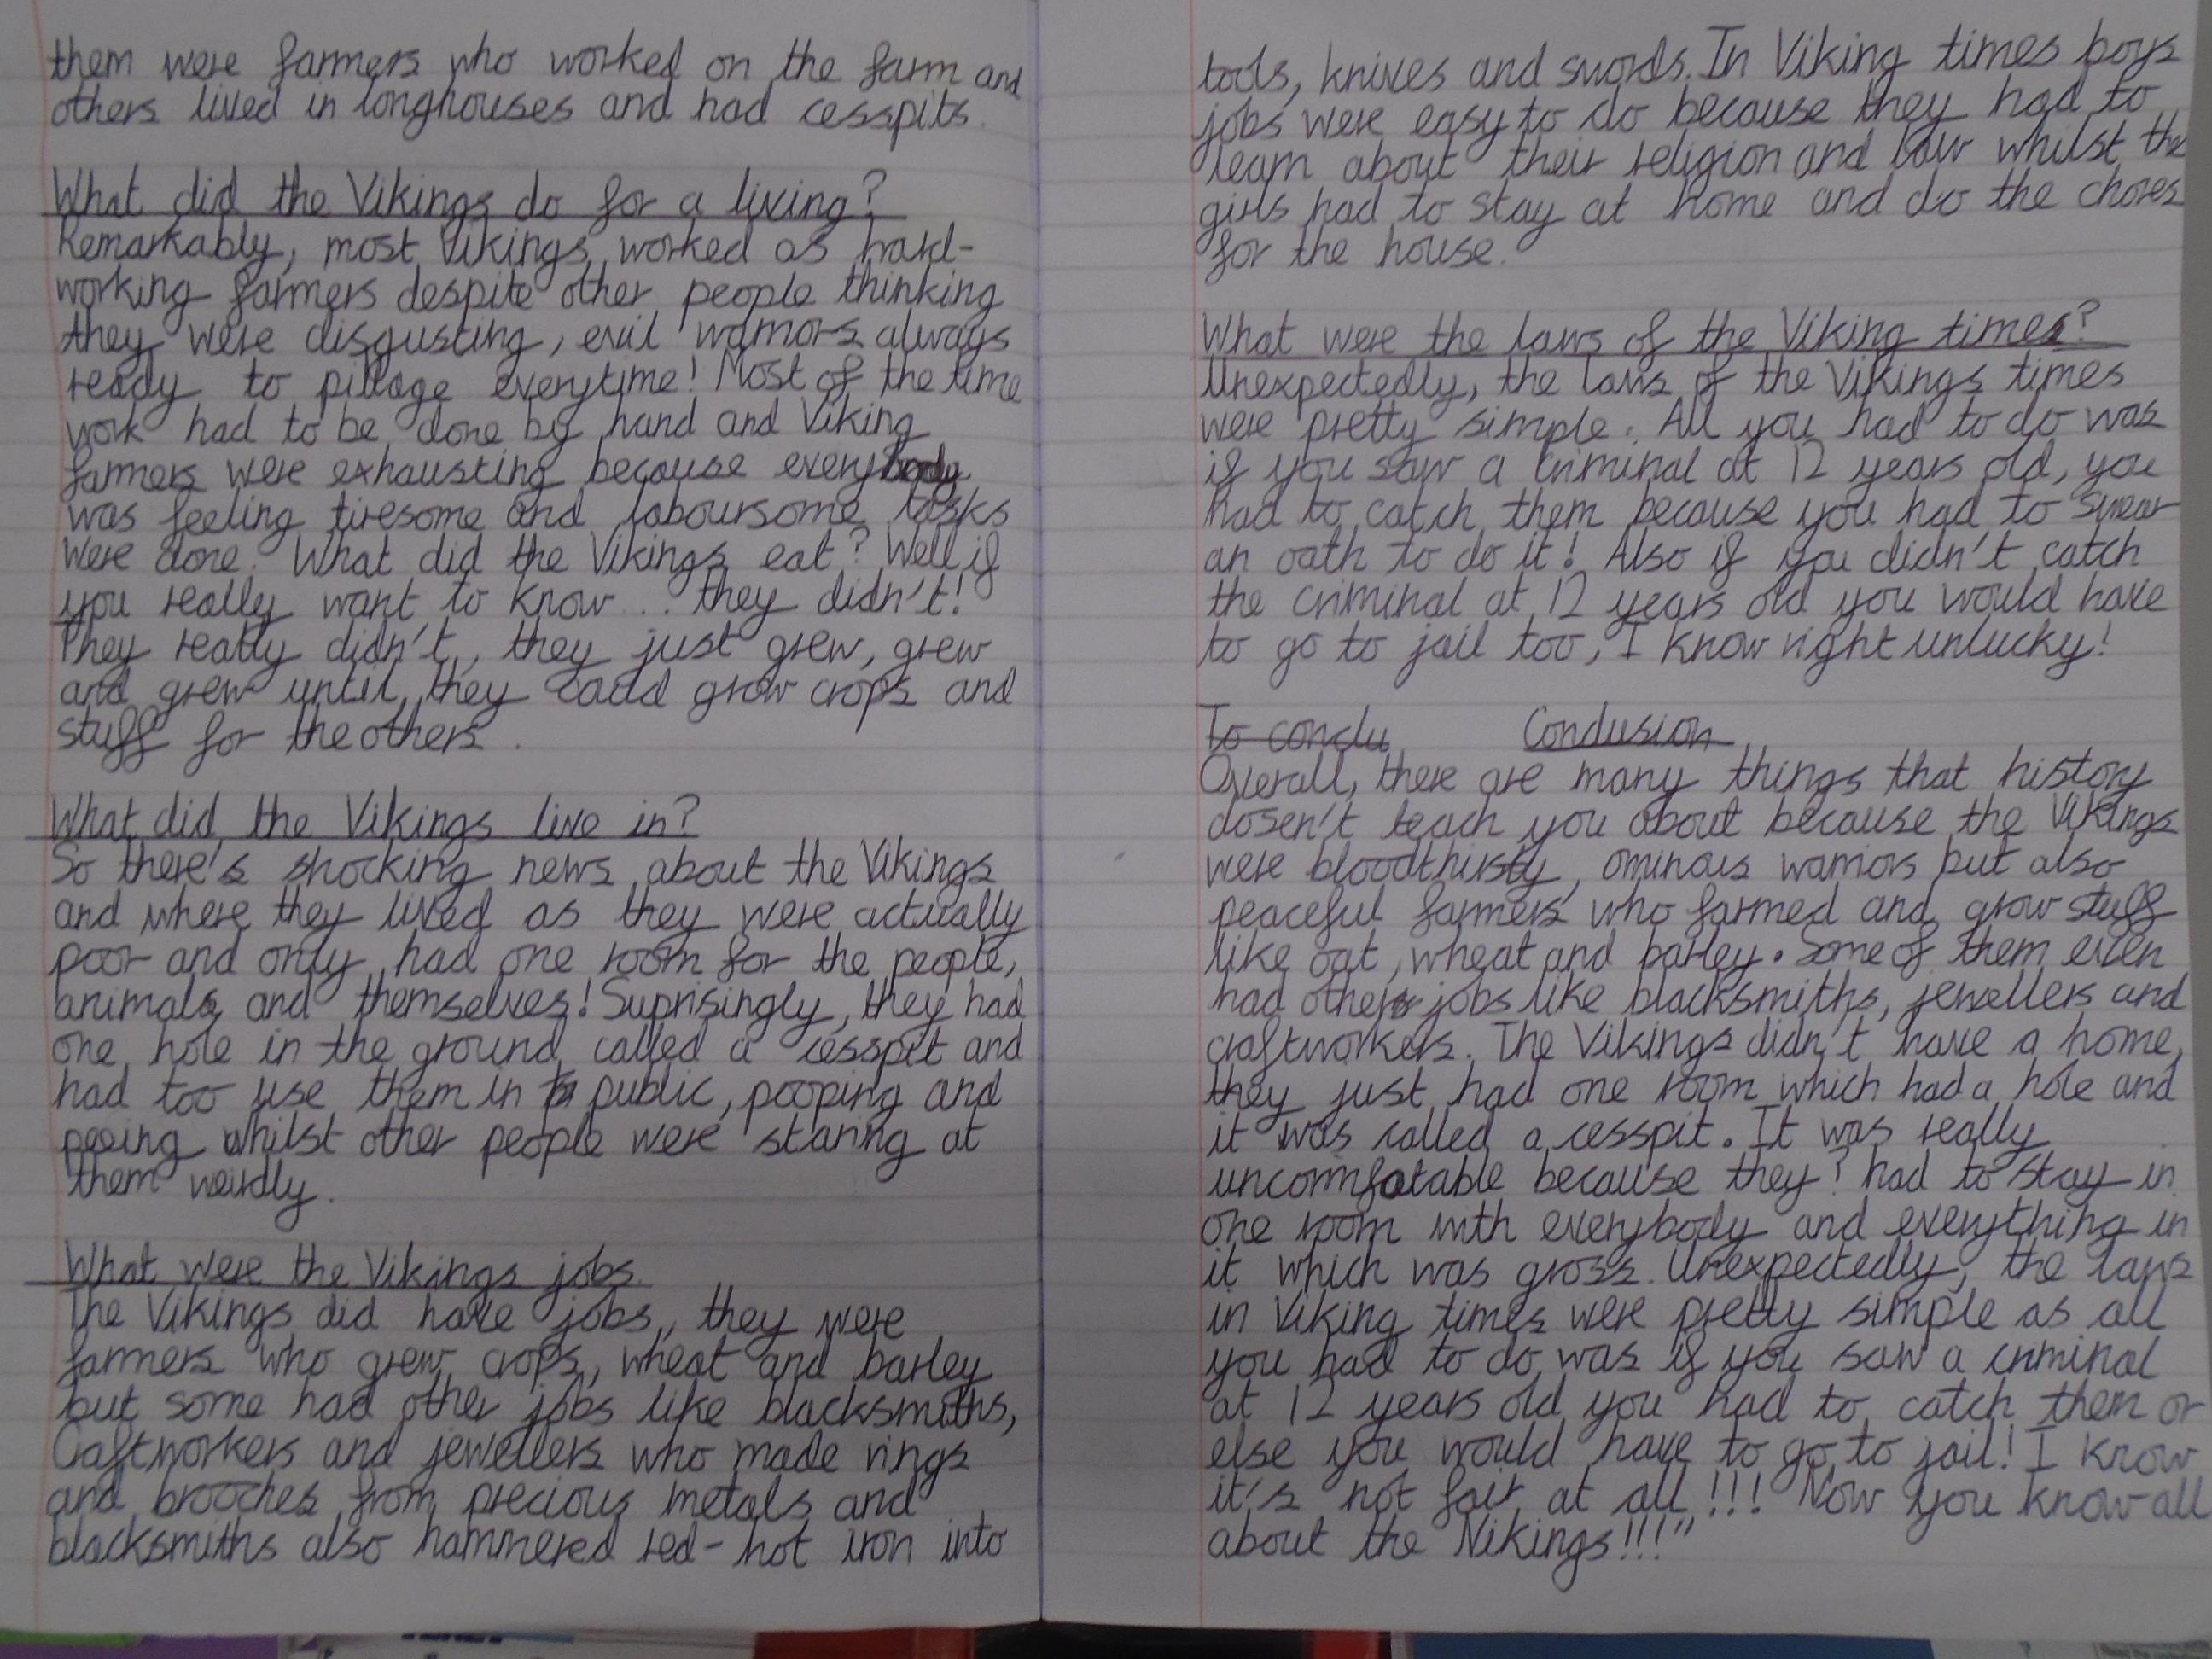 them were farmers who worked on the farm and
others lived in longhouses and had cesspits.
What did the Vikings do for a living?
Remarkably, most Vikings worked as hard-
working farmers despite other people thinking
they were disgusting, evil warriors always
ready to pillage everytime! Most of the time
work had to be done by hand and Viking
farmers were exhausting because everybody
was feeling tiresome and laboursome tasks
were done. What did the Vikings eat? Well if
you really want to know... they didn't!
They really didn't, they just grew, grew
and grew until they could grow crops and
stuff for the others.
What did the Vikings live in?
So there's shocking news about the Vikings
and where they lived as they were actually
poor and only had one room for the people,
animals and themselves! Suprisingly, they had
one hole in the ground called a cesspit and
had too use them in public, pooping and
peeing whilst other people were staring at
them weirdly.
What were the Vikings jobs
The Vikings did have jobs, they were
farmers who grew crops, wheat and barley
but some had other jobs like blacksmiths,
Craftworkers and jewellers who made rings
and brooches from precious metals and
blacksmiths also hammered red-hot iron into
tools, knives and swords. In Viking times boys
jobs were easy to do because they had to
learn about their religion and law whilst the
girls had to stay at home and do the chores
for the house.
What were the laws of the Viking times?
Unexpectedly, the laws of the Vikings times
were pretty simple. All you had to do was
if you saw a criminal at 12 years old, you
had to catch them because you had to swear
an oath to do it! Also if you didn't catch
the criminal at 12 years old you would have
to go to jail too, I know right unlucky!
To conclu Conclusion
Overall, there are many things that history
dosen't teach you about because the Vikings
were bloodthirsty, ominous warriors but also
peaceful farmers who farmed and grow stuff
like oat, wheat and barley. Some of them even
had other jobs like blacksmiths, jewellers and
craftworkers. The Vikings didn't have a home,
they just had one room which had a hole and
it was called a cesspit. It was really
uncomfotable because they! had to stay in
one room with everybody and everything in
it which was gross. Unexpectedly, the laws
in Viking times were pretty simple as all
you had to do was if you saw a criminal
at 12 years old you had to catch them or
else you would have to go to jail! I know
it's not fair at all!!! Now you know all
about the Vikings!!!"